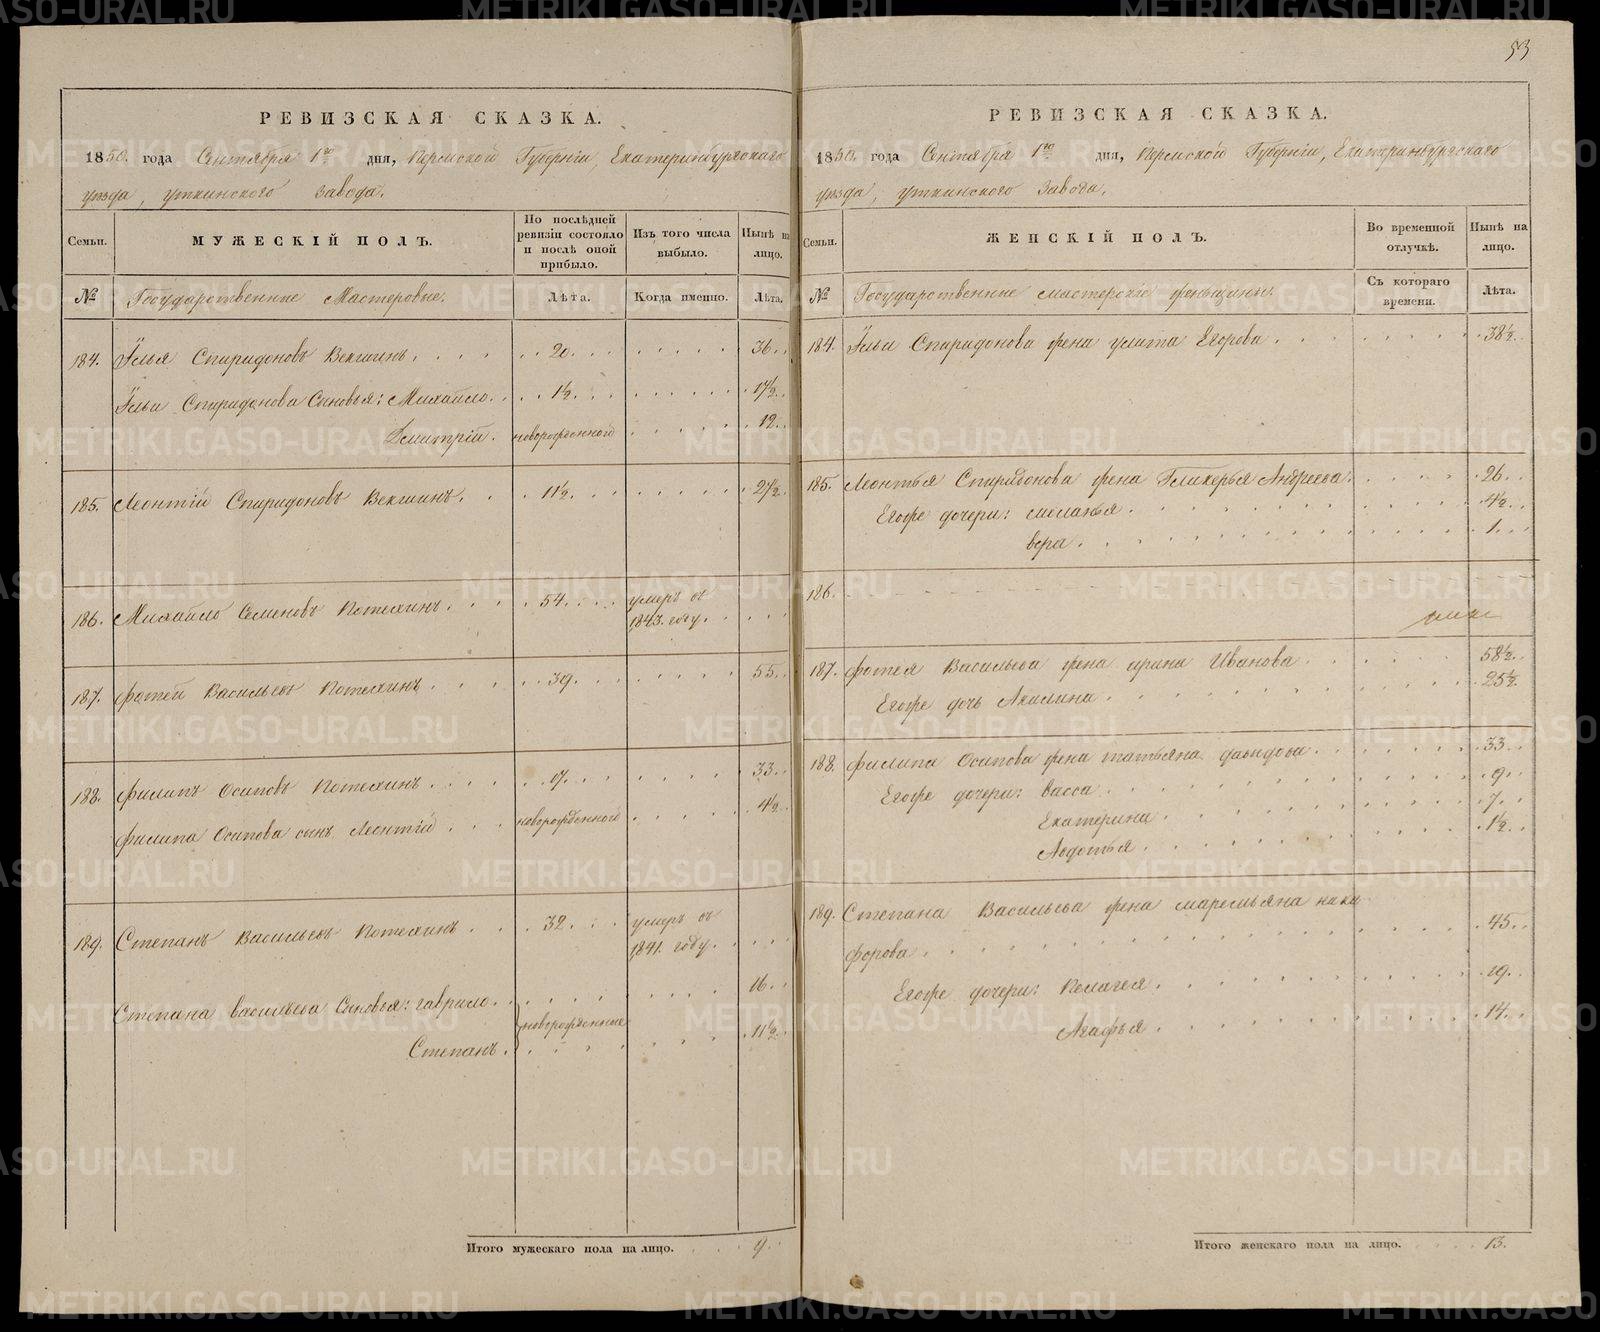 53
РЕВИЗСКАЯ СКАЗКА.
1850. года Сентября 1го дня, Пермской Губерніи, Екатеринбургскаго
уезда, уткинскаго Завода.
Семьи.
МУЖЕСКІЙ ПОЛЪ.
По послѣдней ревизіи состояло и послѣ оной прибыло.
Изъ того числа выбыло.
Нынѣ на лицо.
№
Государственные Мастеровые.
Лѣта.
Когда именно.
Лѣта.
184. Илья Спиридоновъ Векшинъ. 20. 36.
Ильи Спиридонова Сыновья: Михайло. 1½. 17½.
Дмитрій. новорожденной 12.
185. Леонтій Спиридоновъ Векшинъ. 11½. 27½.
186. Михайло Семеновъ Потехинъ. 54. умеръ въ
1843. году.
187. фотей Васильевъ Потехинъ. 39. 55.
188. филипъ Осиповъ Потехинъ. 17. 33.
филипа Осипова сынъ Леонтій. новорожденной 4½.
189. Степанъ Васильевъ Потехинъ. 32. умеръ въ
1841. году.
Степана васильева Сыновья: гаврило. 16.
новорожденные
Степанъ. 11½.
Итого мужескаго пола на лицо. 9.
РЕВИЗСКАЯ СКАЗКА.
1850. года Сентября 1го дня, Пермской Губерніи, Екатеринбургскаго
уезда, уткинскаго Завода.
Семьи.
ЖЕНСКІЙ ПОЛЪ.
Во временной отлучкѣ.
Нынѣ на лицо.
№
Государственные мастерскіе женьщины.
Съ котораго времени.
Лѣта.
184. Ильи Спиридонова жена улита Егорова. 38½.
185. Леонтья Спиридонова жена Гликерья Андреева. 26.
Егоже дочери: миланья. 4½.
вера. 1.
186.
187. Фотея Васильева жена ирина Иванова. 58½.
Егоже дочь Акилина. 25½.
188. филипа Осипова жена татьяна давыдова. 33.
Егоже дочери: васса. 9.
Екатерина. 7.
Авдотья. 1½.
189. Степана Васильева жена маремьяна ники
форова. 45.
Егоже дочери: Пелагея. 19.
Агафья. 14.
Итого женскаго пола на лицо. 13.
METRIKI.GASO-URAL.RU